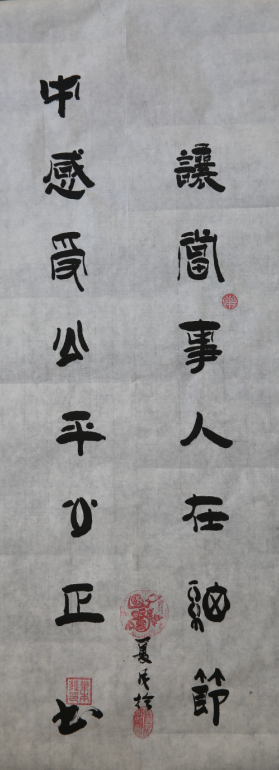 讓當事人在細節
中感受公平公正
書